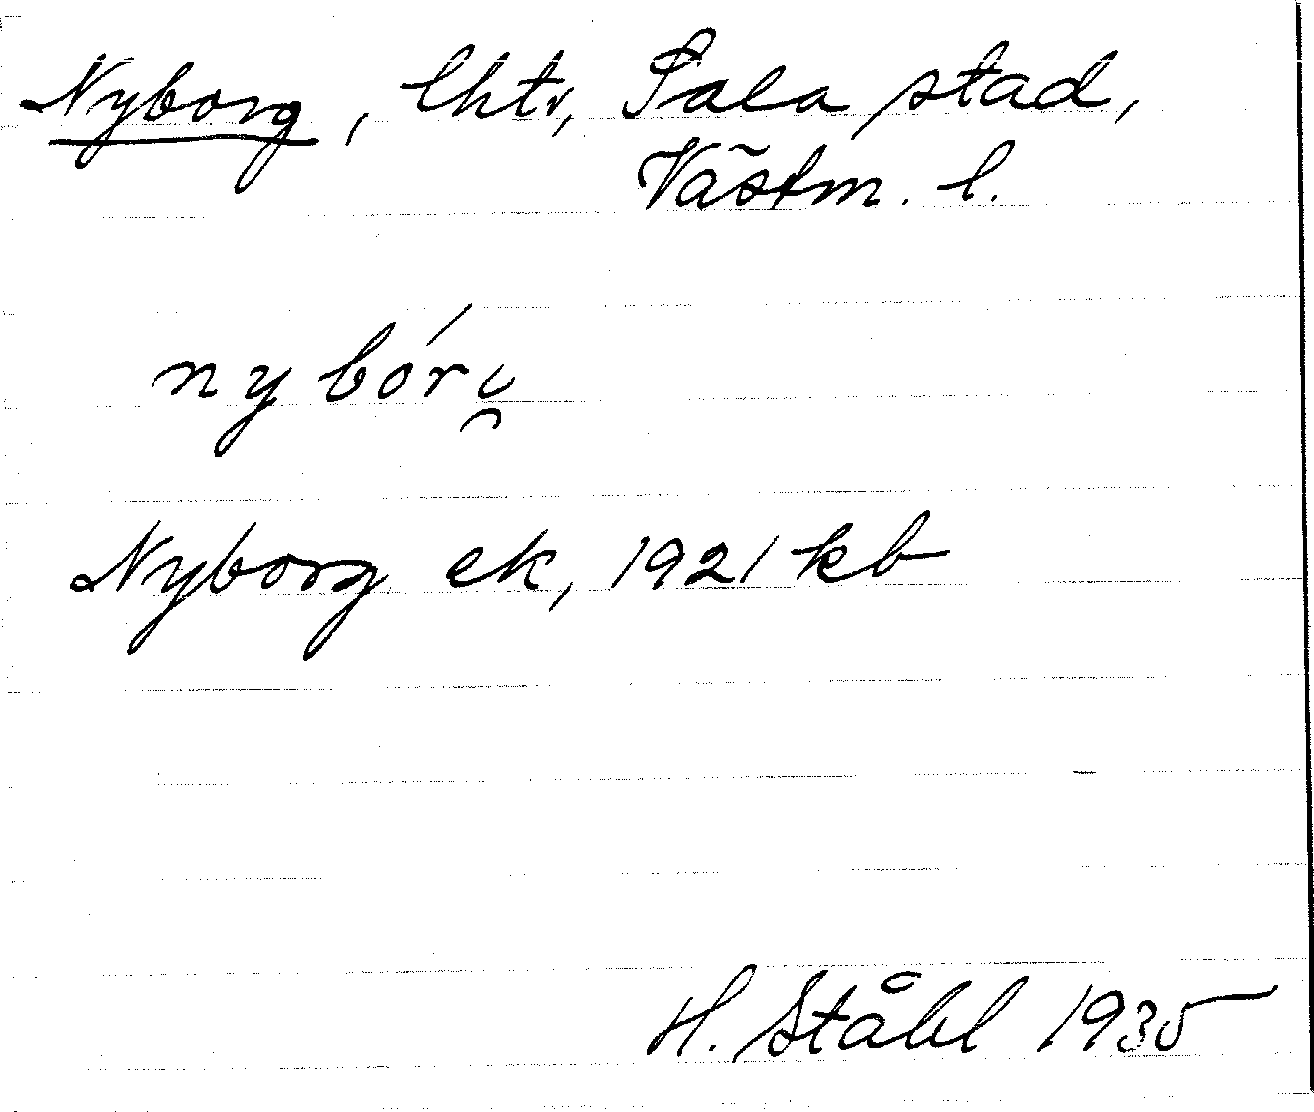 Nyborg, lht, Sala stad,
Västm. l.
nybór
Nyborg ek, 1921 kb
H. Ståhl 1935